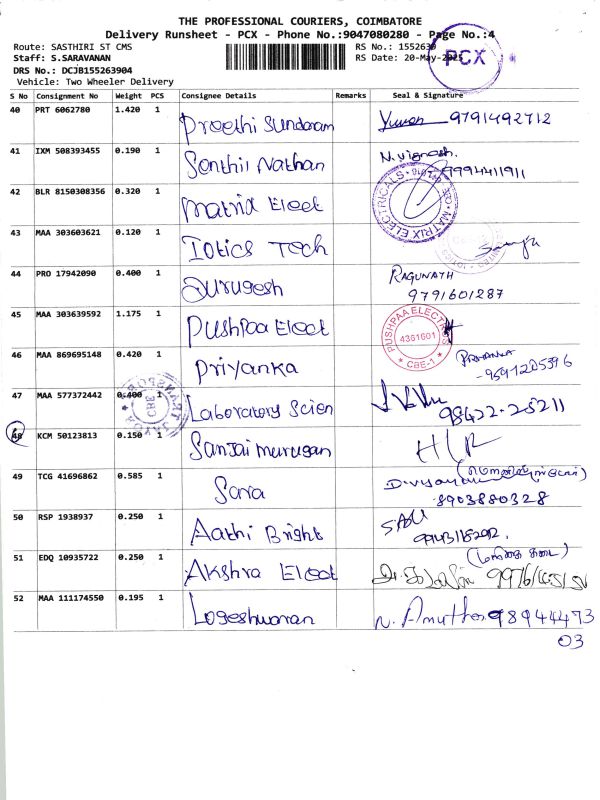 THE PROFESSIONAL COURIERS, COIMBATORE
Delivery Runsheet - PCX - Phone No.:9047080280 - Page No.:4
Route: SASTHIRI ST CMS
RS No.: 1552639
Staff: S.SARAVANAN
RS Date: 20-May-2025
DRS No.: DCJB155263904
Vehicle: Two Wheeler Delivery
PCX
S No Consignment No Weight PCS Consignee Details Remarks Seal & Signature
40 PRT 6062780 1.420 1 Preethi Sundaram 9791492712
41 IXM 508393455 0.190 1 Senthil Nathan N. Vignesh. 9994411911
42 BLR 8150308356 0.320 1 Matrix Elect MATRIX ELECTRICALS
43 MAA 303603621 0.120 1 Iotics Tech
44 PRO 17942090 0.400 1 Surugesh RAGUNATH
9791601287
45 MAA 303639592 1.175 1 Pushpaa Elect PUSHPAA ELECTRICALS 4361601 CBE-1
46 MAA 869695148 0.420 1 Priyanka PRIYANKA
- 9597205396
47 MAA 577372442 0.400 1 Laboratory Scien 98422-25211
48 KCM 50123813 0.150 1 Sanjai murugan
49 TCG 41696862 0.585 1 Sara
8903880328
50 RSP 1938937 0.250 1 Aathi Bright
51 EDQ 10935722 0.250 1 Akshra Elect
52 MAA 111174550 0.195 1 Logeshwaran N. Amutha 98944473
03